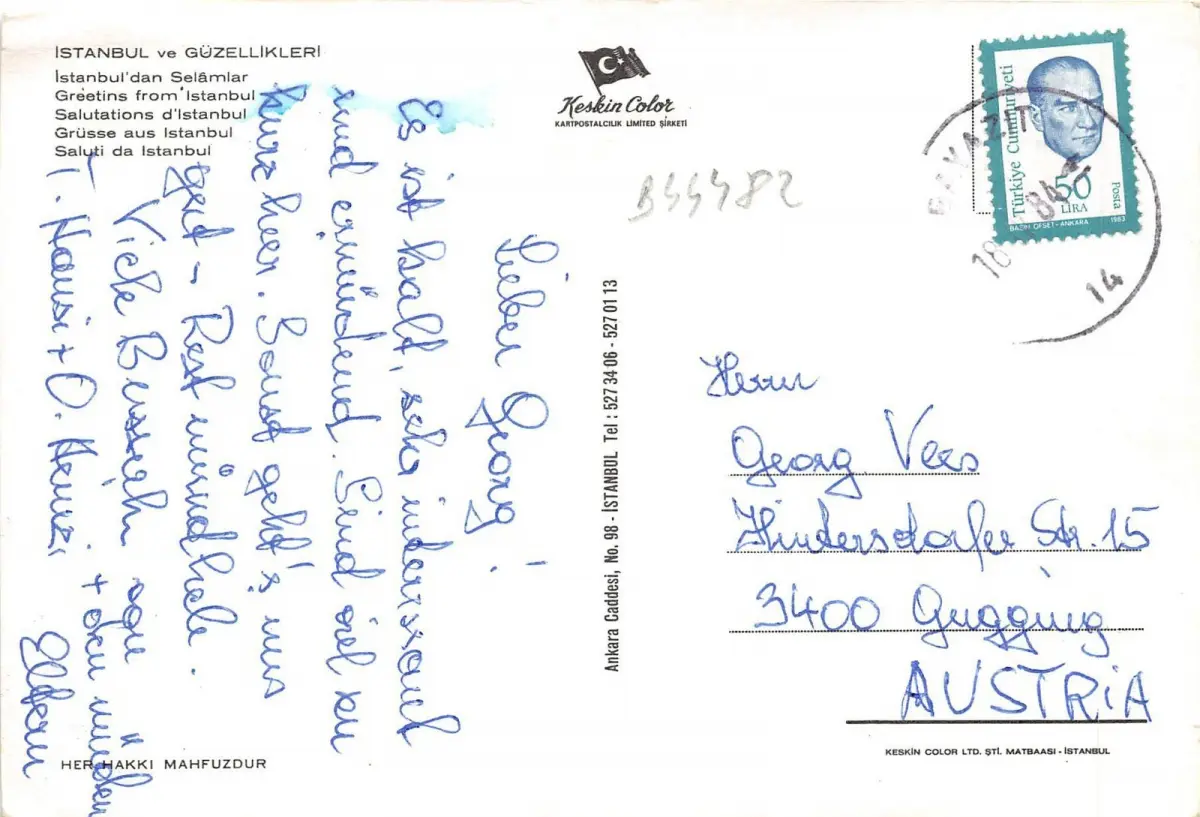 İSTANBUL ve GÜZELLİKLERİ
İstanbul'dan Selâmlar
Greetins from İstanbul
Salutations d'İstanbul
Grüsse aus İstanbul
Saluti da İstanbul
Keskin Color
KARTPOSTALCILIK LIMITED ŞİRKETİ
B44482
Türkiye Cumhuriyeti
50
LİRA
Posta
BAŞIM OFSET - ANKARA 1983
BAYAZIT
18 84
14
Lieber Georg!
Es ist kalt, sehr interessant
und ermüdend. Sind viel zu
kurz hier. Sonst geht's uns
gut - Rest mündlich.
Viele Bussiah
T. Hansi + O. Heinzi
+ den müden
Eltern
Ankara Caddesi, No. 98 - İSTANBUL Tel : 527 34 06 - 527 01 13
Herrn
Georg Vees
Hintersdorfer Str. 15
3400 Gugging
AUSTRIA
HER HAKKI MAHFUZDUR
KESKİN COLOR LTD. ŞTİ. MATBAASI - İSTANBUL